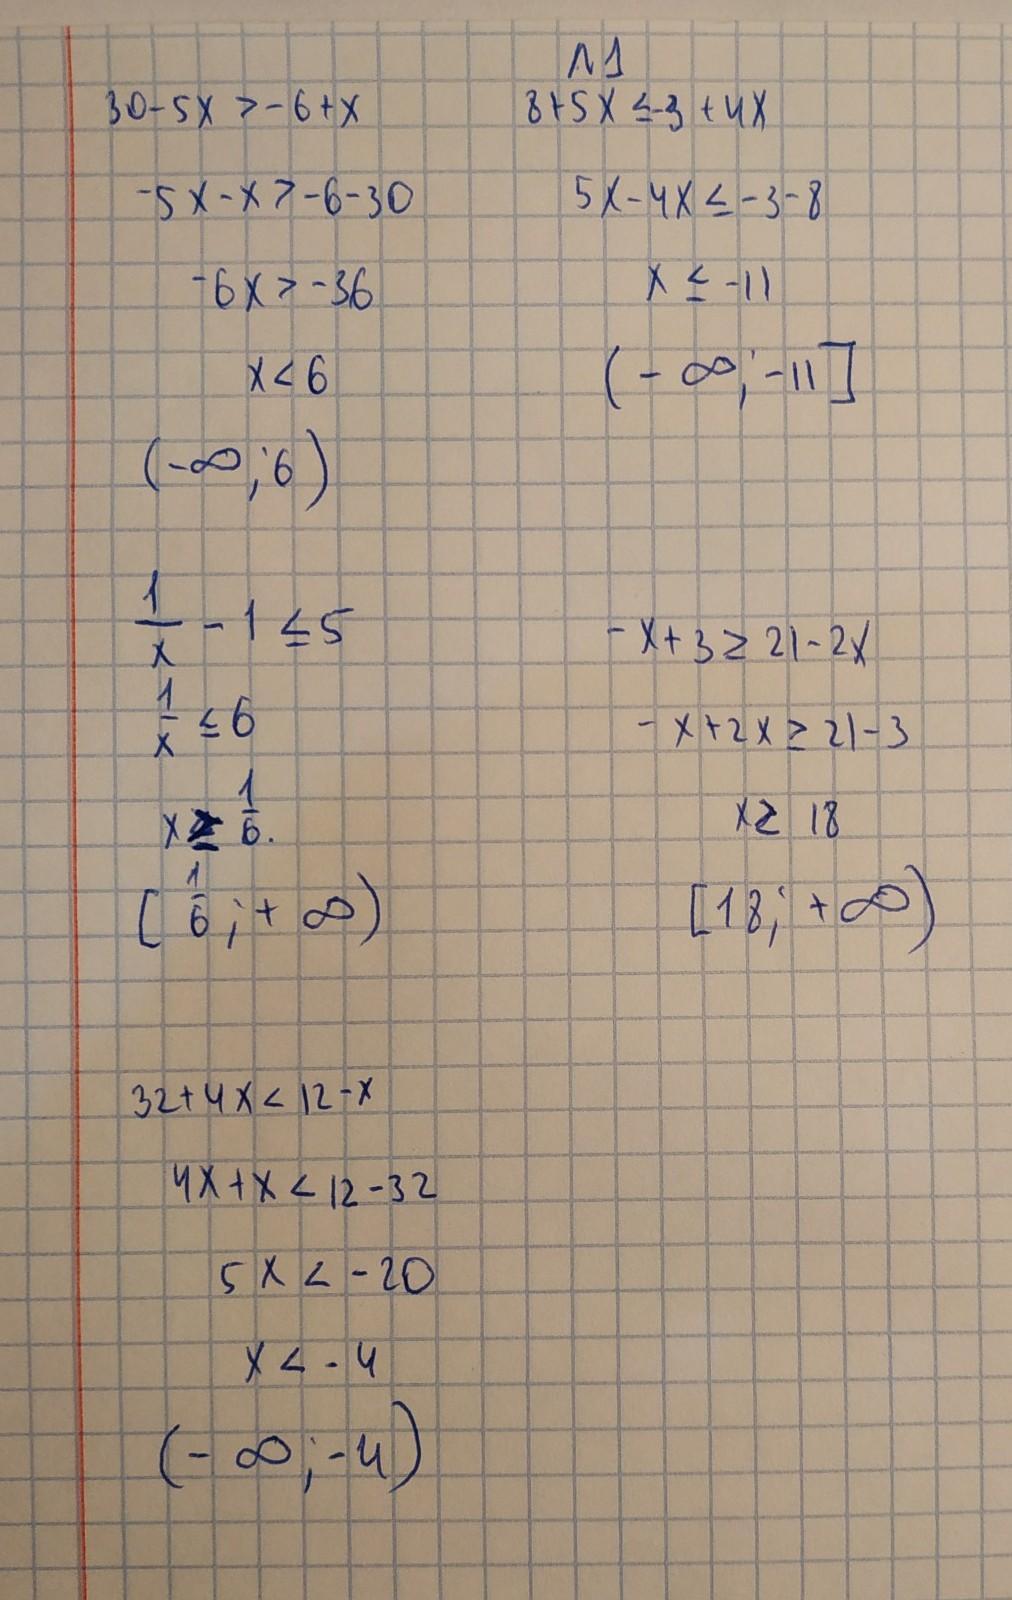 №1
30-5x > -6+x
-5x-x > -6-30
-6x > -36
x < 6
(-∞; 6)
8+5x ≤ -3+4x
5x-4x ≤ -3-8
x ≤ -11
(-∞; -11]
1/x - 1 ≤ 5
1/x ≤ 6
x ≥ 1/6.
[1/6; +∞)
-x+3 ≥ 21-2x
-x+2x ≥ 21-3
x ≥ 18
[18; +∞)
32+4x < 12-x
4x+x < 12-32
5x < -20
x < -4
(-∞; -4)